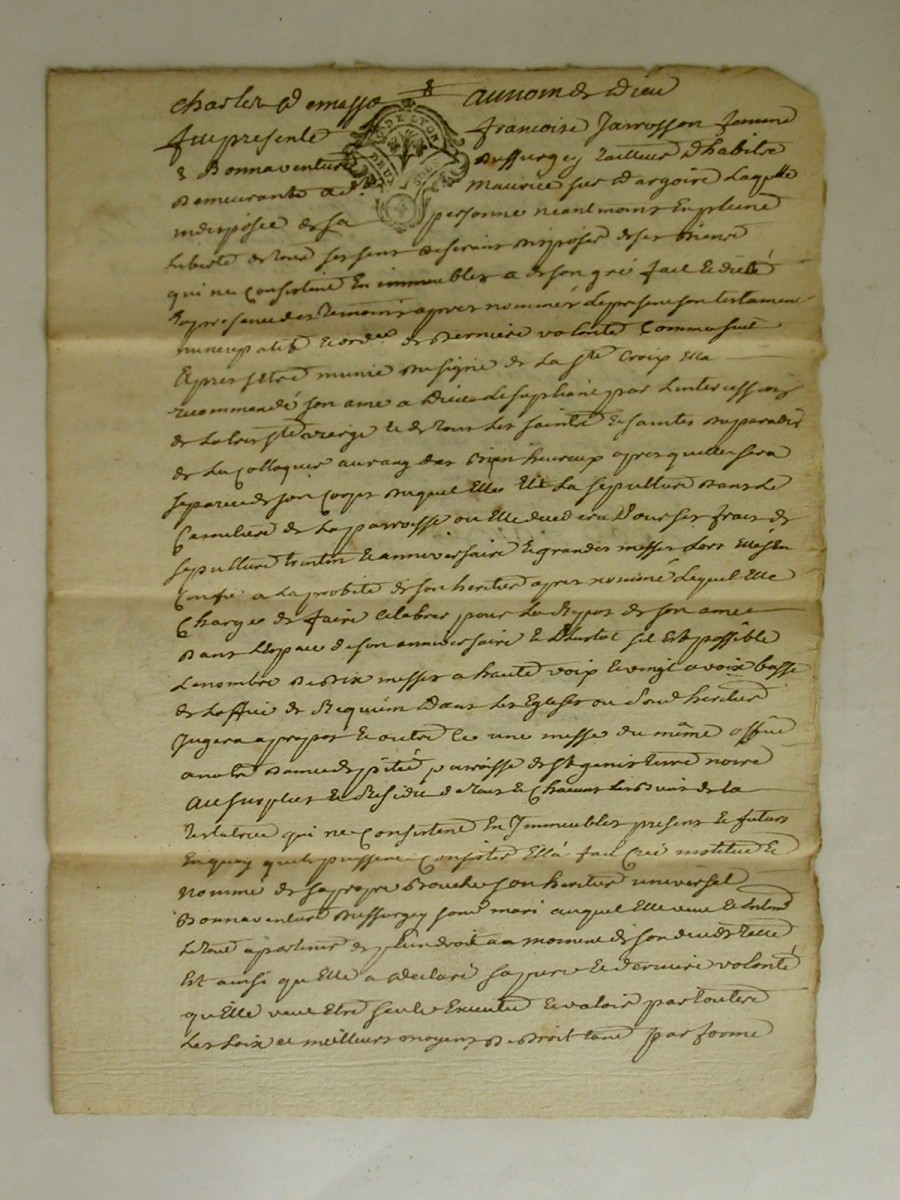 au nom de Dieu
fut presente francoise Jarrosson femme
a Bonnaventure Dussurgey tailleur Dhabits
Demeurante a St Maurice sur Dargoire Laquelle
indisposée de sa personne neantmoins En pleine
Liberté de tous ses sens desirant Disposer de ses biens
qui ne Consistent En immeubles a de son gré fait Et dicté
En presence des temoins apres nommés Le present son testament
nuncupatif Et ordre de Derniere volonté Comme suit
Apres sEtre munie du signe de La Ste Croix Ella
recommandé son ame a Dieu Le supliant par Lintercession
de La tres Ste vierge Et de tous Les saints Et saintes du paradis
de La Colloquer au rang des Bien heureux apres quelle sera
separée de son Corps duquel Elle Elit La sepulture Dans Le
Cimetiere de La parroisse ou Elle decedera Pour ses frais de
sepulture Et anniversaire Et grandes messes Lors Elle sEn
Confie a La probité de son heritier apres nommé Lequel Elle
Charge de faire Celebrer pour Le Repos de son ame
Dans Lespace de son anniversaire Et plustot sil Est possible
Le nombre de Dix messes a haute voix Et vingt a voix basse
de Loffice de Requiem Dans Les Eglises ou Sond heritier
Jugera a propos Et outre Ce une messe du même office
a notre Dame de pitié parroisse de St genis terre noire
Au surplus Et Residû de tous Et Chacuns Les Biens de la
testatrice qui ne Consistent En Immeubles presents Et futurs
En quoy quils puissent Consister Ella fait Créé institué Et
Nommé de sa propre Bouche son heritier universel
Bonnaventure Dussurgey son mari auquel Elle veut Et Entend
Le tout apartenir de plein droit au moment de son decès telle
Est ainsi quElle a declaré sa pure Et derniere volonté
quElle veut Etre seule Executée Et valoir par toutes
Les Loix et meilleurs moyens De Droit tant par forme